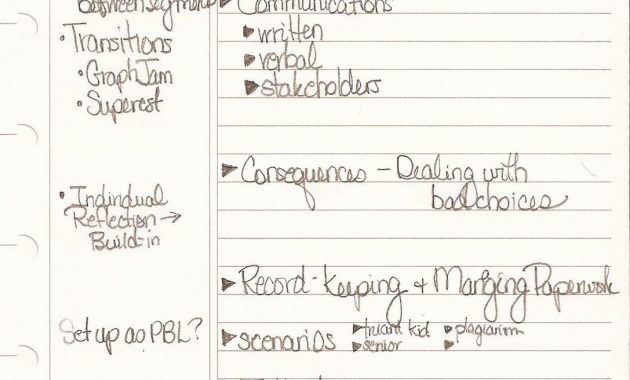 between segments
• Transitions
• GraphJam
• Superest
• Individual
Reflection →
Build-in
Set up as PBL?
▶ Communications
▶ written
▶ verbal
▶ stakeholders
▶ Consequences – Dealing with
bad choices
▶ Record-keeping + Manging Paperwork
▶ scenarios ▶ truant kid ▶ plagiarism
▶ senior ▶